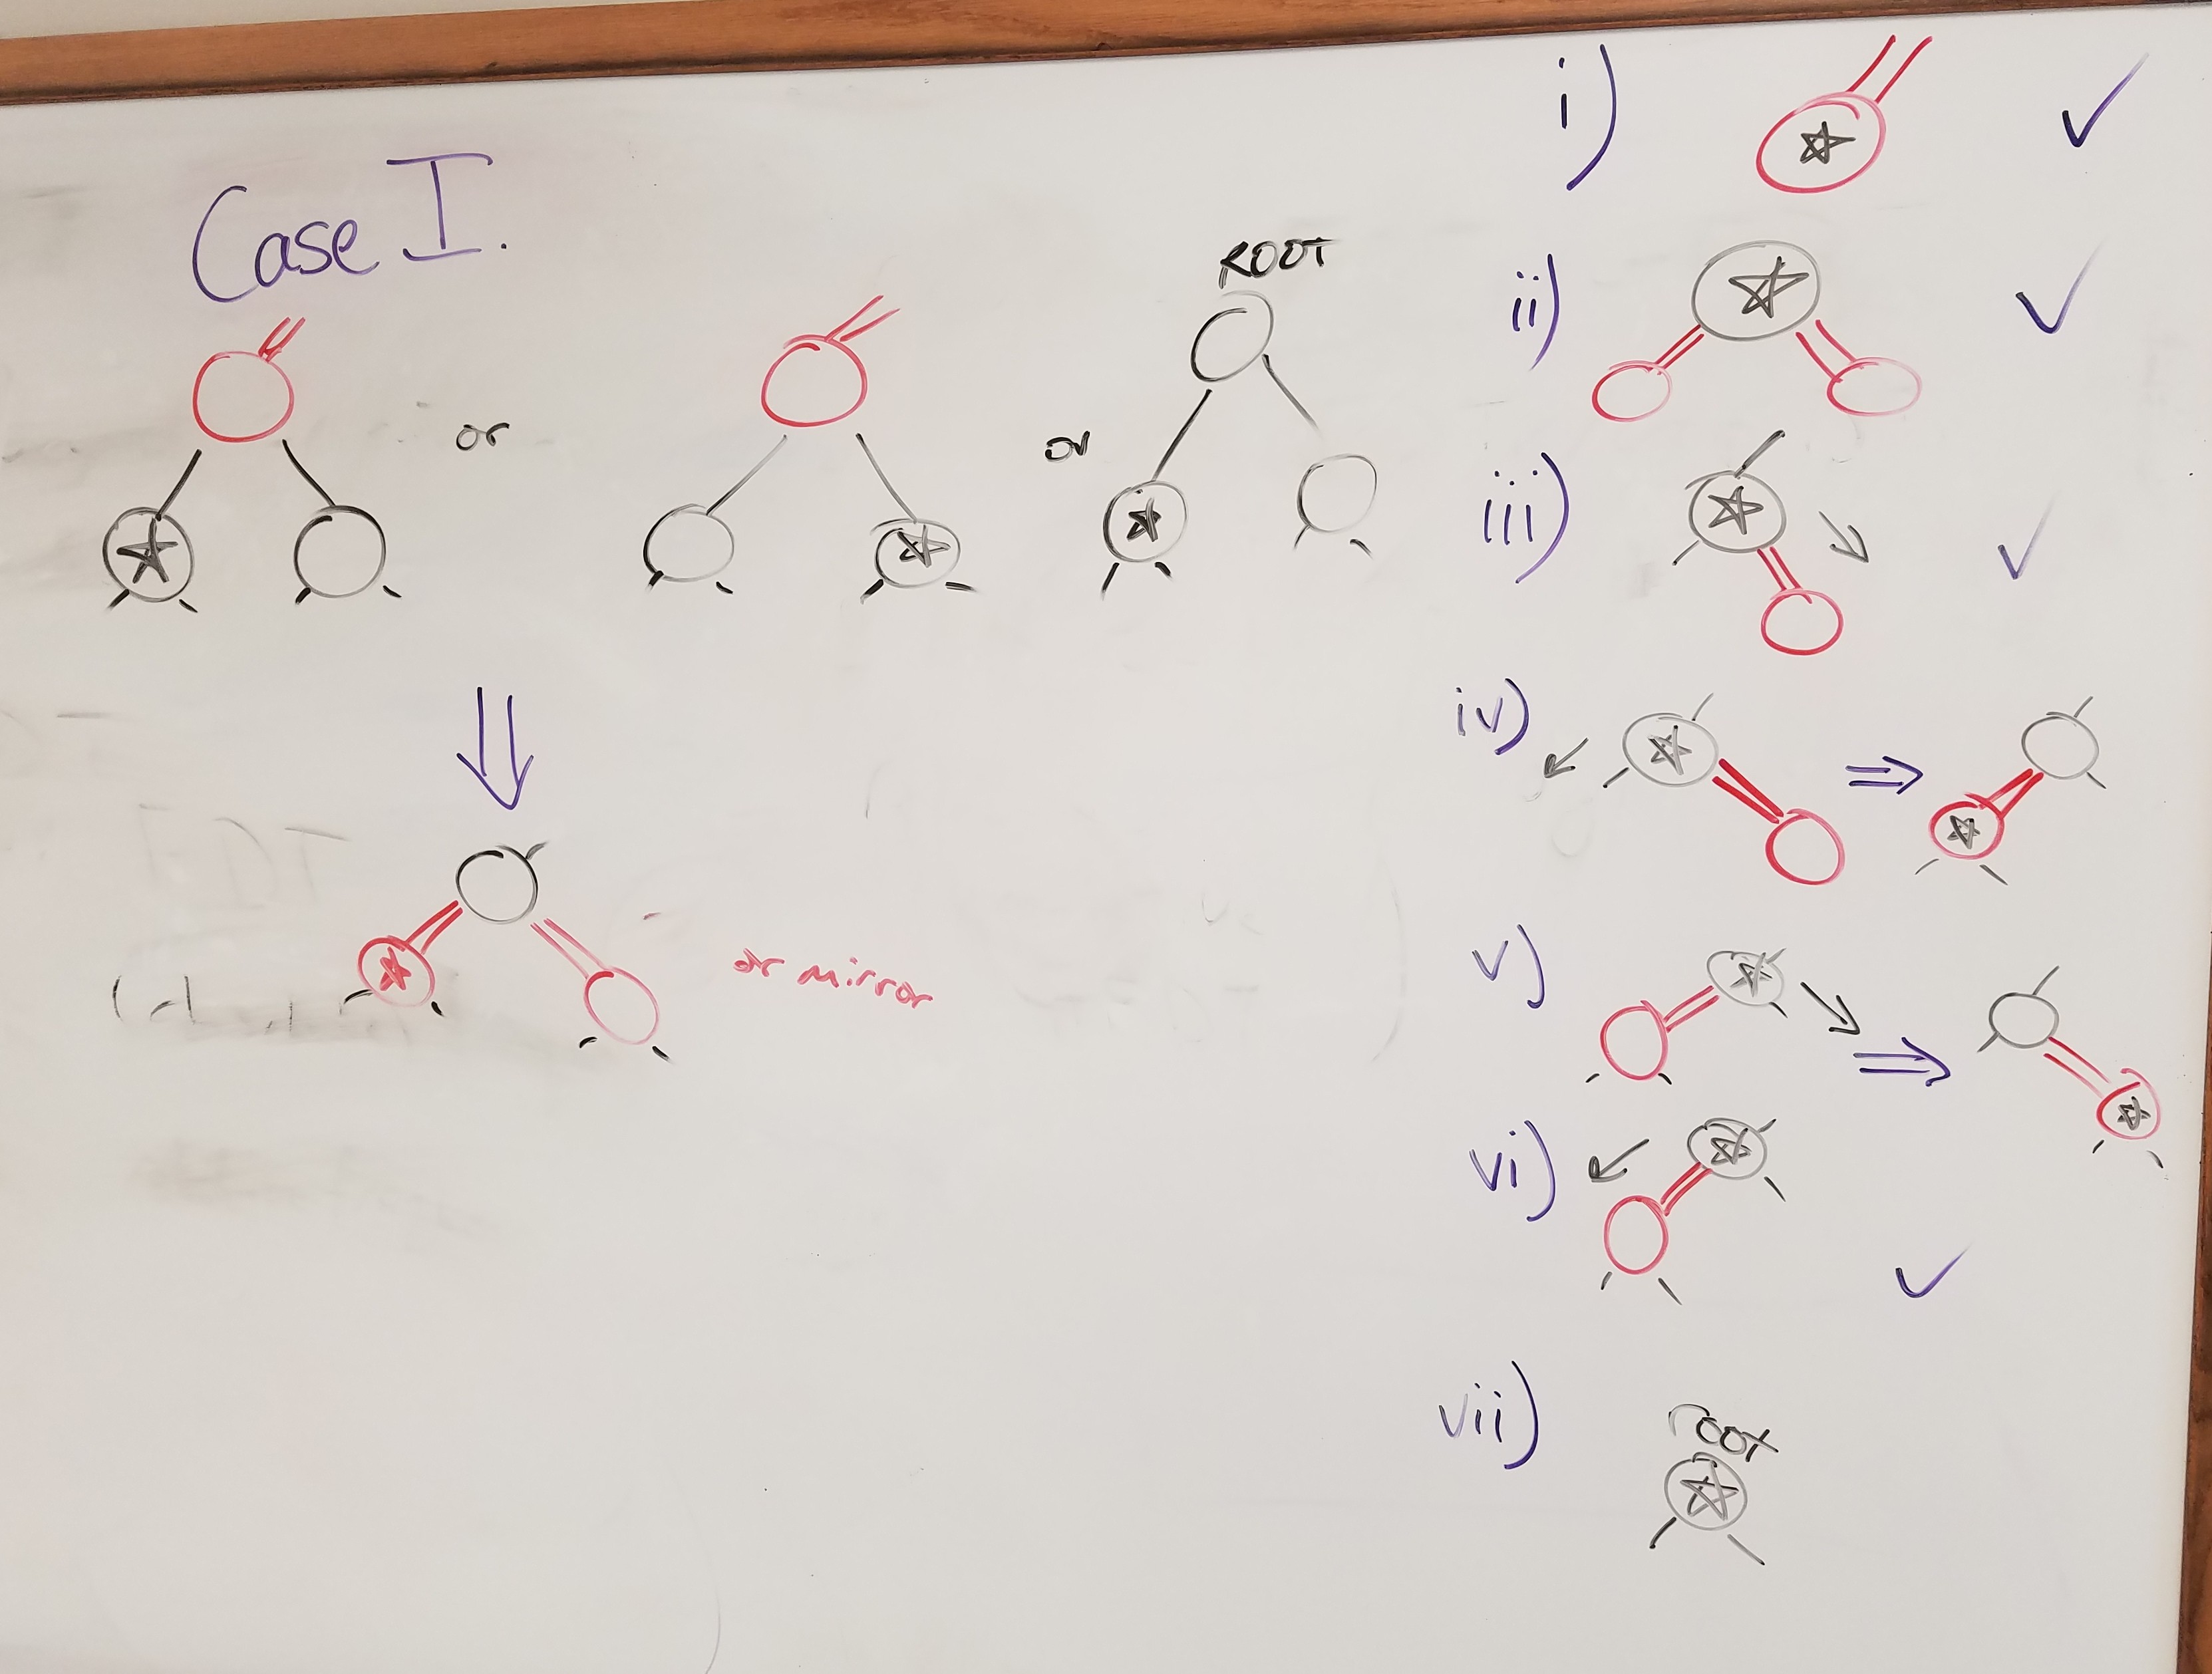 Case I.
or
or
ROOT
or mirror
i)
ii)
iii)
iv)
v)
vi)
vii)
root